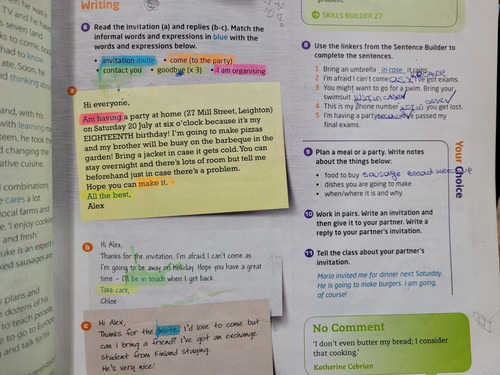 Writing
6 Read the invitation (a) and replies (b-c). Match the
informal words and expressions in blue with the
words and expressions below.
• invitation invite • come (to the party)
• contact you • goodbye (x 3) • I am organising
a
Hi everyone,
Am having a party at home (27 Mill Street, Leighton)
on Saturday 20 July at six o'clock because it's my
EIGHTEENTH birthday! I'm going to make pizzas
and my brother will be busy on the barbeque in the
garden! Bring a jacket in case it gets cold. You can
stay overnight and there's lots of room but tell me
beforehand just in case there's a problem.
Hope you can make it.
All the best,
Alex
b
Hi Alex,
Thanks for the invitation. I'm afraid I can't come as
I'm going to be away on holiday. Hope you have a great
time – I'll be in touch when I get back.
Take care,
Chloe
c
Hi Alex,
Thanks for the invite. I'd love to come but
can I bring a friend? I've got an exchange
student from Finland staying.
He's very nice!
problem.
SKILLS BUILDER 27
8 Use the linkers from the Sentence Builder to
complete the sentences.
1 Bring an umbrella in case it rains.
2 I'm afraid I can't come as I've got exams.
3 You might want to go for a swim. Bring your
swimsuit just in case
4 This is my phone number you get lost.
5 I'm having a party because I've passed my
final exams.
9 Plan a meal or a party. Write notes
about the things below:
• food to buy sausage bread
• dishes you are going to make
• when/where it is and why
10 Work in pairs. Write an invitation and
then give it to your partner. Write a
reply to your partner's invitation.
11 Tell the class about your partner's
invitation.
Maria invited me for dinner next Saturday.
He is going to make burgers. I am going,
of course!
Your Choice
No Comment
'I don't even butter my bread; I consider
that cooking.'
Katherine Cebrian
TV and
seven (and
ks to comic
had to know
ate. Soon, he
and, with his
learning
teen, he took
d changing the
ative cuisine.
l combinations
cares a lot
ocal farms and
'I enjoy
and fresh'
uke is an expert
ked sausages are
plans and
dozens of his
to teach people
to go to Europe
and talk to his